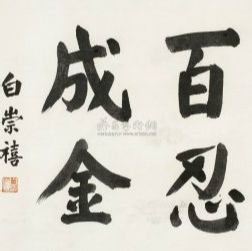 百忍
成金
白崇禧